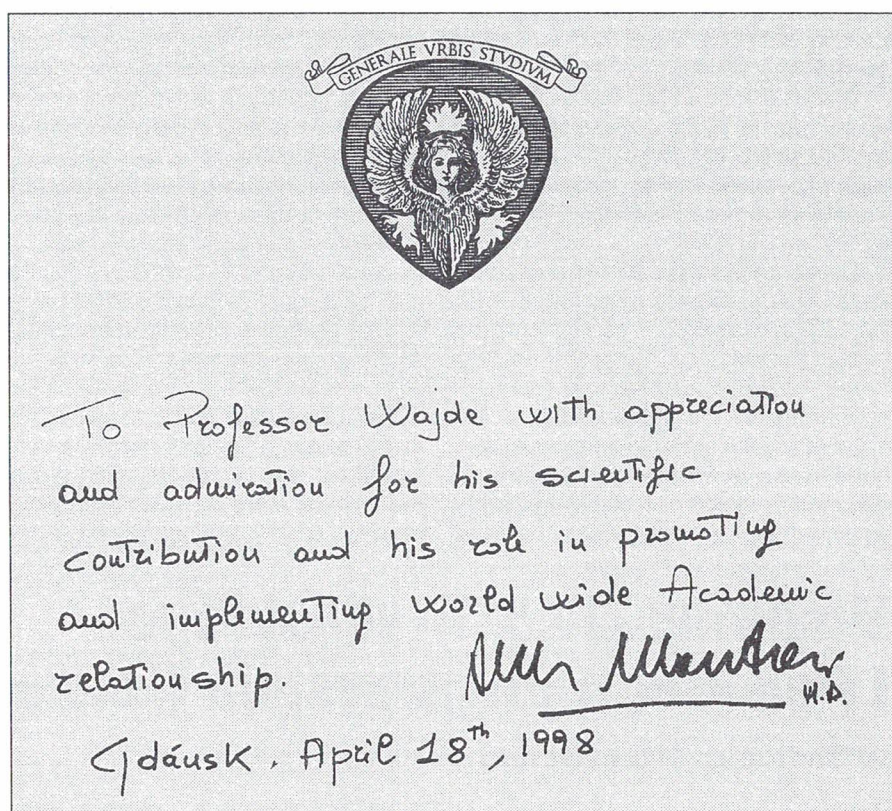 GENERALE VRBIS STVDIVM
To Professor Wajde with appreciation
and admiration for his scientific
contribution and his role in promoting
and implementing World wide Academic
relationship.
M.D.
Gdánsk, April 18th, 1998